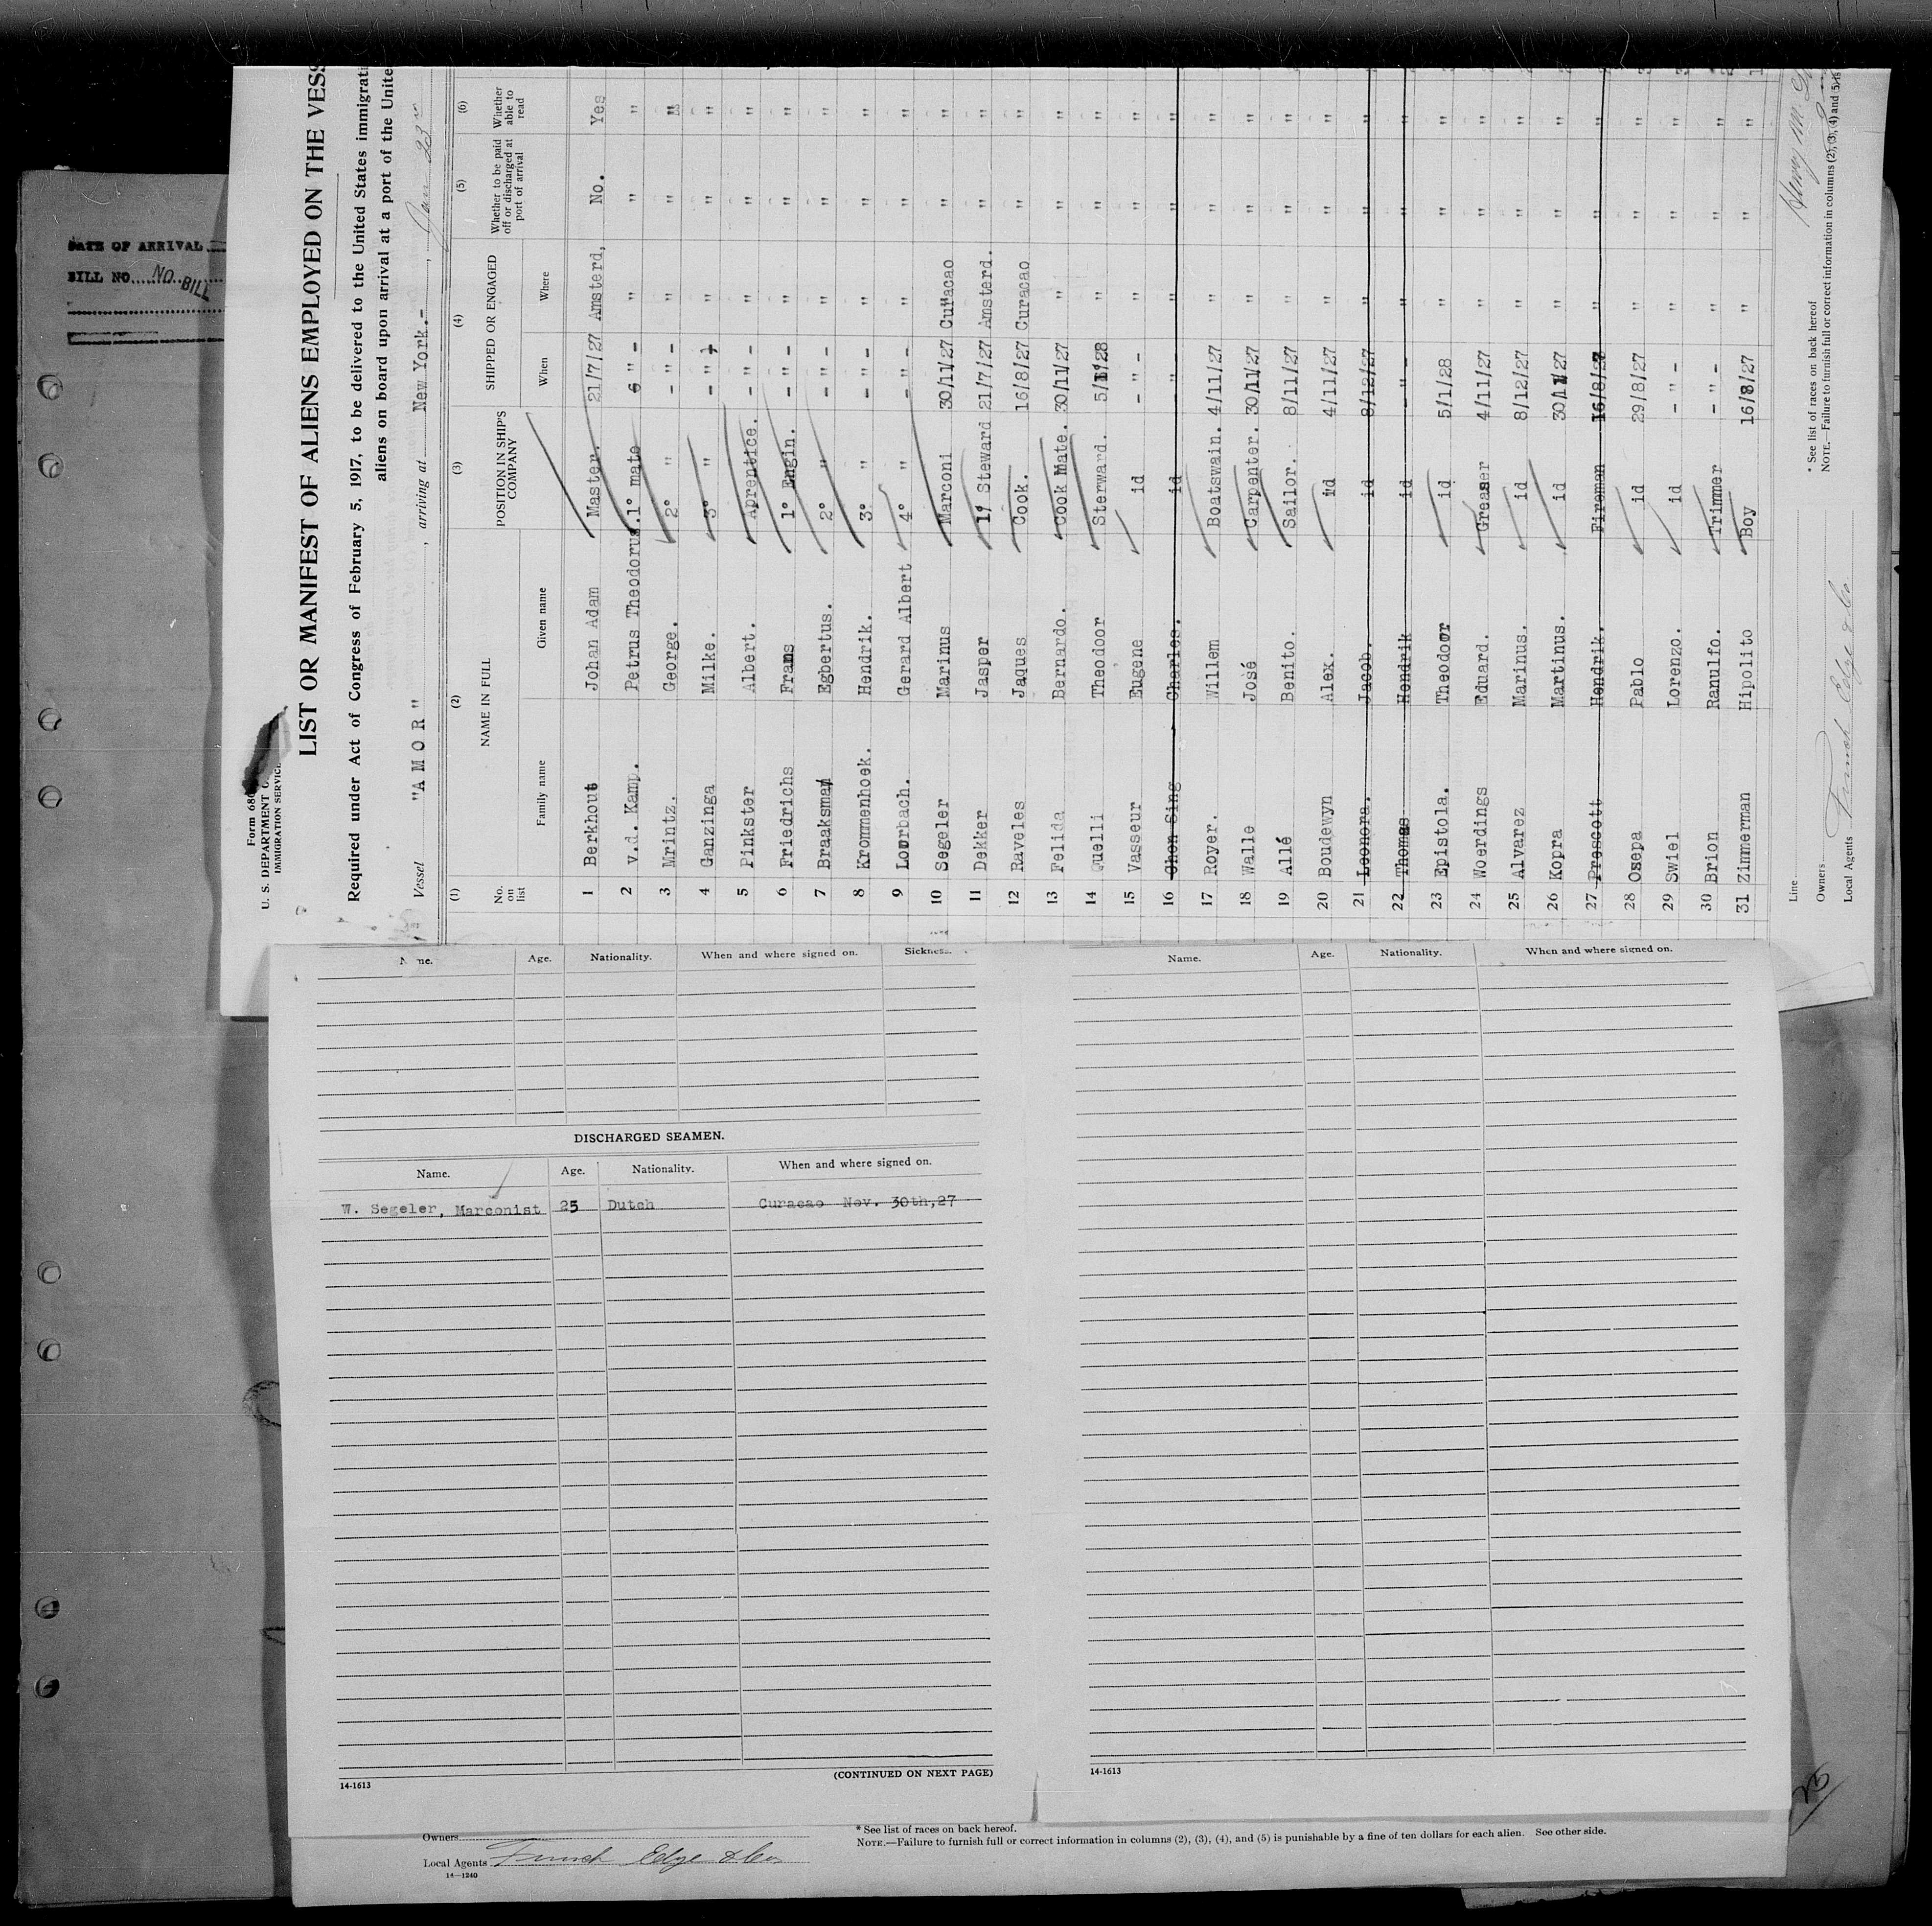 DATE OF ARRIVAL
BILL NO. NO BILL
Form 680
U. S. DEPARTMENT O
IMMIGRATION SERVICE
LIST OR MANIFEST OF ALIENS EMPLOYED ON THE VESS
Required under Act of Congress of February 5, 1917, to be delivered to the United States immigrati
aliens on board upon arrival at a port of the United
Vessel "A M O R" , arriving at New York.- , Jan 23
(1) (2) (3) (4) (5) (6)
No. on list NAME IN FULL POSITION IN SHIP'S COMPANY SHIPPED OR ENGAGED Whether to be paid off or discharged at port of arrival Whether able to read
Family name Given name When Where
1 Berkhout Johan Adam Master. 21/7/27 Amsterd, No. Yes
2 v.d. Kamp. Petrus Theodorus. 1° mate 6 " - " " "
3 Mrintz. George. 2° " - " - " " "
4 Ganzinga Milke. 3° " - " - " " "
5 Pinkster Albert. Aprentice. - " - " " "
6 Friedrichs Frans 1° Engin. - " - " " "
7 Braaksman Egbertus. 2° " - " - " " "
8 Krommenhoek. Hendrik. 3° " - " - " " "
9 Lourbach. Gerard Albert 4° " - " - " " "
10 Segeler Marinus Marconi 30/11/27 Curacao " "
11 Dekker Jasper 1° Steward 21/7/27 Amsterd. " "
12 Raveles Jaques Cook. 16/8/27 Curacao " "
13 Felida Bernardo. Cook Mate. 30/11/27 " " "
14 Quelli Theodoor Sterward. 5/1/28 " " "
15 Vasseur Eugene id - " - " " "
16 Chen Sing Charles. id - " - " " "
17 Royer. Willem Boatswain. 4/11/27 " " "
18 Walle José Carpenter. 30/11/27 " " "
19 Allé Benito. Sailor. 8/11/27 " " "
20 Boudewyn Alex. id 4/11/27 " " "
21 Leonora. Jacob. id 8/12/27 " " "
22 Thomas Hendrik id - " - " " "
23 Epistola. Theodoor id 5/1/28 " " "
24 Woerdings Eduard. Greaser 4/11/27 " " "
25 Alvarez Marinus. id 8/12/27 " " "
26 Kopra Martinus. id 30/11/27 " " "
27 Prescott Hendrik. Fireman 16/8/27 " " "
28 Osepa Pablo id 29/8/27 " " "
29 Swiel Lorenzo. id - " - " " "
30 Brion Ranulfo. Trimmer - " - " " "
31 Zimmerman Hipolito Boy 16/8/27 " " "
Line
Owners
Local Agents Funch Edye & Co
* See list of races on back hereof
NOTE.—Failure to furnish full or correct information in columns (2), (3), (4) and 5) is
Name. Age. Nationality. When and where signed on. Sickness.
DISCHARGED SEAMEN.
Name. Age. Nationality. When and where signed on.
W. Segeler, Marconist 25 Dutch Curacao Nov. 30th, 27
14-1613
(CONTINUED ON NEXT PAGE)
Name. Age. Nationality. When and where signed on.
14-1613
Owners
Local Agents Funch Edye & Co
14—1240
* See list of races on back hereof.
NOTE.—Failure to furnish full or correct information in columns (2), (3), (4), and (5) is punishable by a fine of ten dollars for each alien. See other side.
23